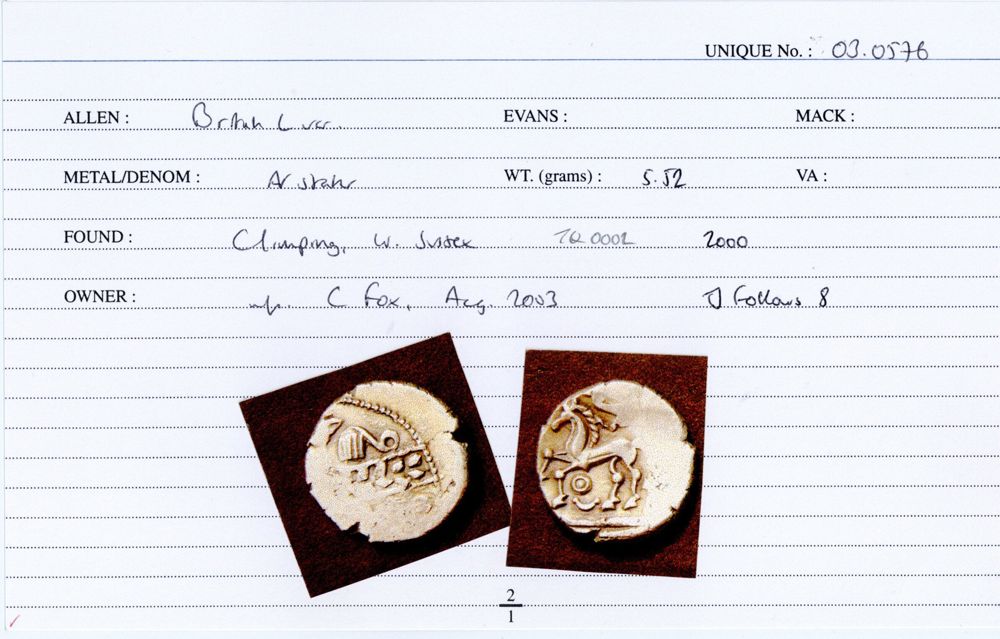 UNIQUE No. : 03.0576
ALLEN : British L var. EVANS : MACK :
METAL/DENOM : AV stater WT. (grams) : 5.52 VA :
FOUND : Climping, W. Sussex TQ 0002 2000
OWNER : C Fox, Aug. 2003 J Follows 8
2
1